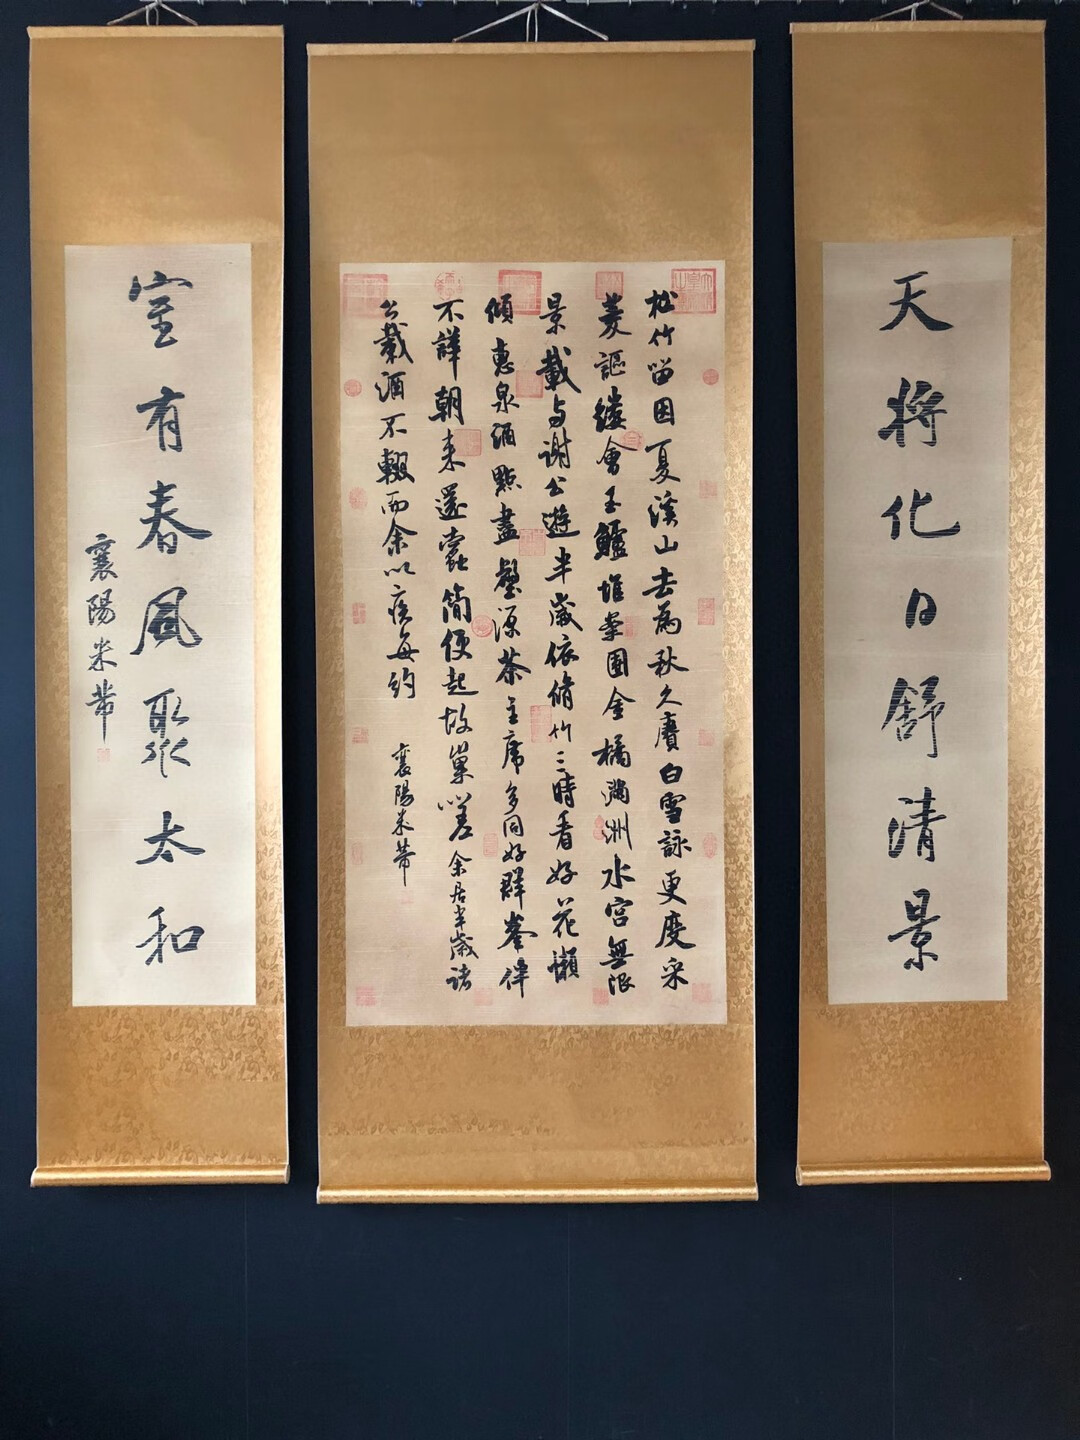 天將化日舒清景
松竹留因夏溪山去為秋久賡白雪詠更度采
菱謳縷會玉鱸堆案團金橘滿洲水宮無限
景載与謝公遊半歲依脩竹三時看好花懶
傾惠泉酒點盡壑源茶主席多同好群峯伴
不譁朝来還蠹簡便起故巢嗟余居半歲諸
公載酒不輟而余以疾每約
襄陽米芾
室有春風聚太和
襄陽米芾